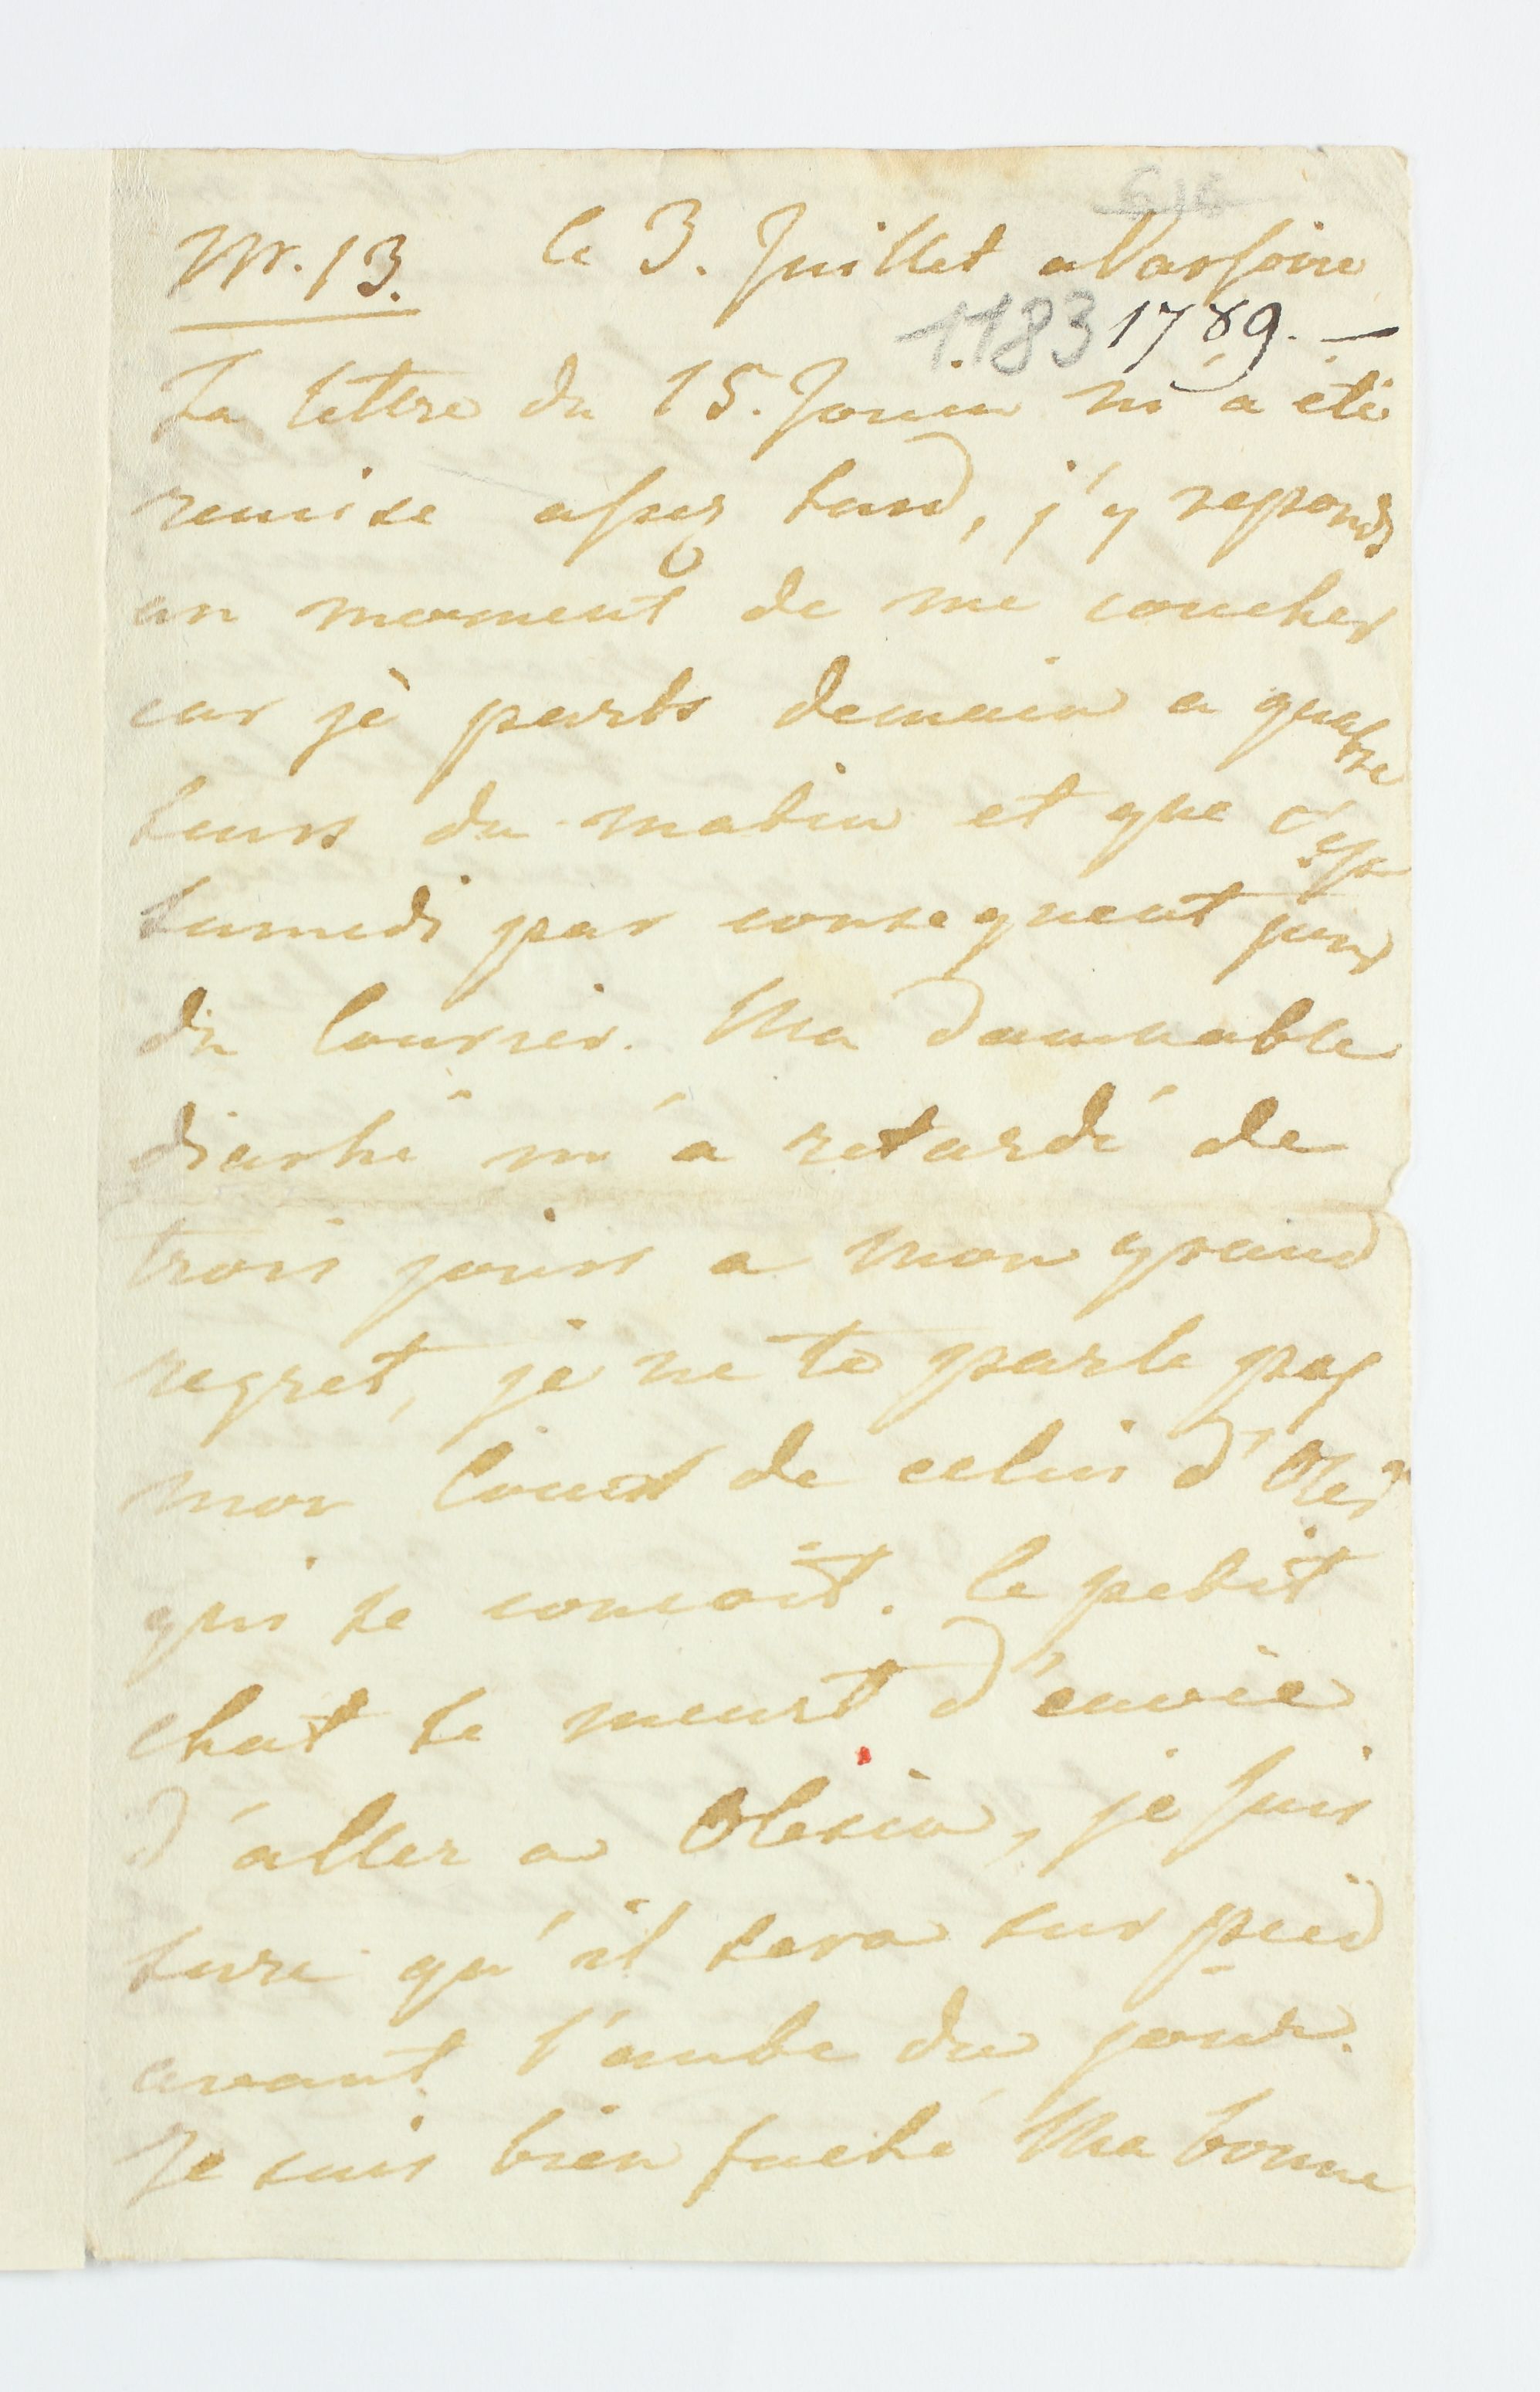 Nr. 13. le 3. Juillet a Varsovie
1783 1789. —
Ta lettre du 15. Jouin m'a été
remise assez tard, j'y reponds
au moment de me coucher
car je parts demain a quatre
heurs du matin et que c'est
samedi par consequent jour
du Courier. Ma damnable
diarhé m'a retardé de
trois jours a mon grand
regret, je ne te parle pas
mon Coeur de celui d'
qui se concoit. le petit
chat se meurt d'envie
d'aller a Olesin, je suis
sure qu'il sera sur pied
avant l'aube du jour.
Je suis bien faché Ma bonne